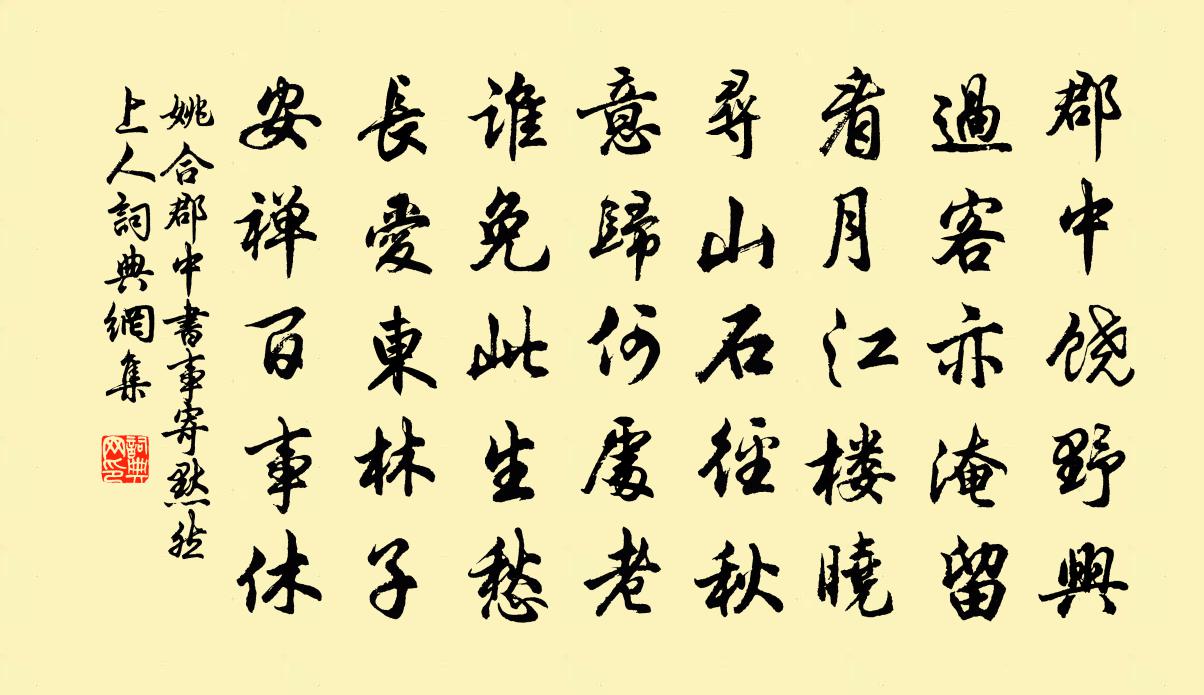 郡中饶野興
過客亦淹留
看月江楼曉
尋山石徑秋
意歸何處老
誰免此生愁
長愛東林子
安禅百事休
姚合郡中書事寄默然
上人詞典網集
詞典网印